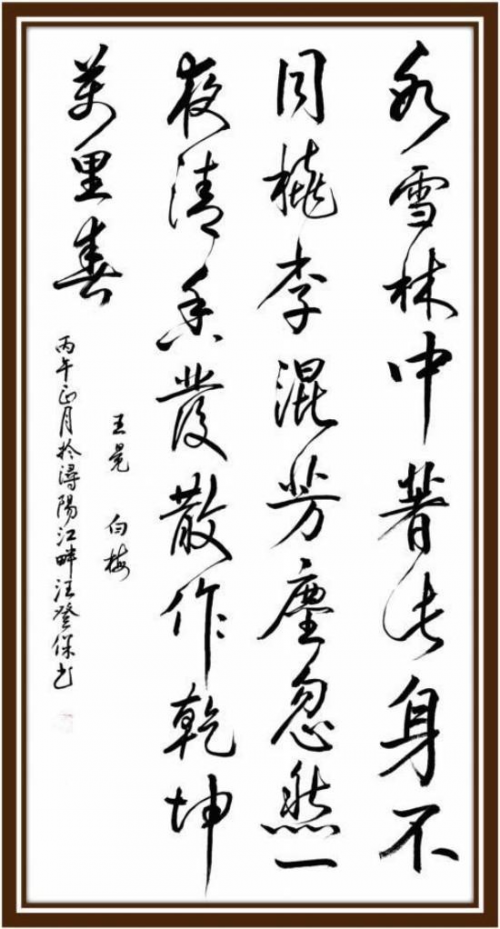 冰雪林中著此身不
同桃李混芳塵忽然一
夜清香發散作乾坤
萬里春
王冕 白梅
丙午正月於潯陽江畔汪登保書